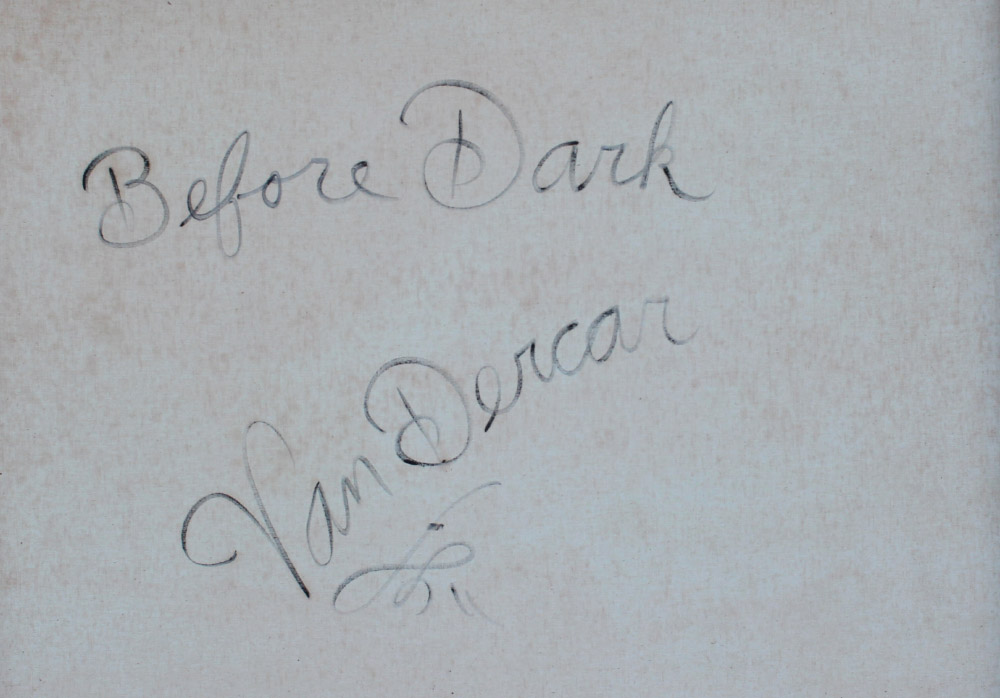 Before Dark
Van Dercar